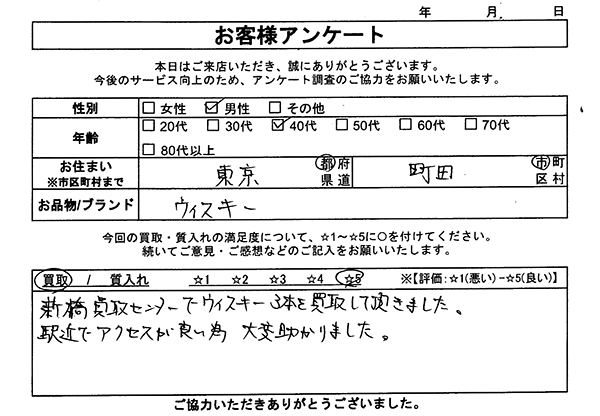 年 月 日
お客様アンケート
本日はご来店いただき、誠にありがとうございます。
今後のサービス向上のため、アンケート調査のご協力をお願いいたします。
性別 □女性 ☑男性 □その他
年齢 □20代 □30代 ☑40代 □50代 □60代 □70代
□80代以上
お住まい 東京 都府 町田 市町
※市区町村まで 県道 区村
お品物/ブランド ウィスキー
今回の買取・質入れの満足度について、☆1～☆5に○を付けてください。
続いてご意見・ご感想などのご記入をお願いいたします。
買取 / 質入れ ☆1 ☆2 ☆3 ☆4 ☆5 ※【評価:☆1(悪い)−☆5(良い)】
新橋買取センターでウィスキー3本を買取して頂きました。
駅近でアクセスが良い為 大変助かりました。
ご協力いただきありがとうございました。